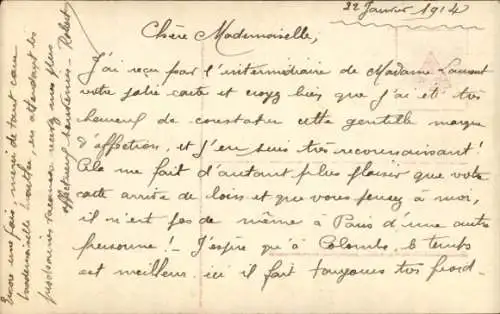 22 Janvier 1914
Chère Mademoiselle,
J'ai reçu par l'intermédiaire de Madame Laurent
votre jolie carte et croyez bien que j'ai été très
heureux de constater cette gentille marque
d'affection, et j'en suis très reconnaissant!
Cela me fait d'autant plus plaisir que votre
carte arrive de loin et que vous pensez à moi,
il n'est pas de même à Paris d'une autre
personne! - J'espère qu'à Colombo, le temps
est meilleur. ici il fait toujours très froid.
Encore une fois, merci de tout cœur
Mademoiselle
en attendant les
prochaines vacances recevez mes plus
affectueux
Robert